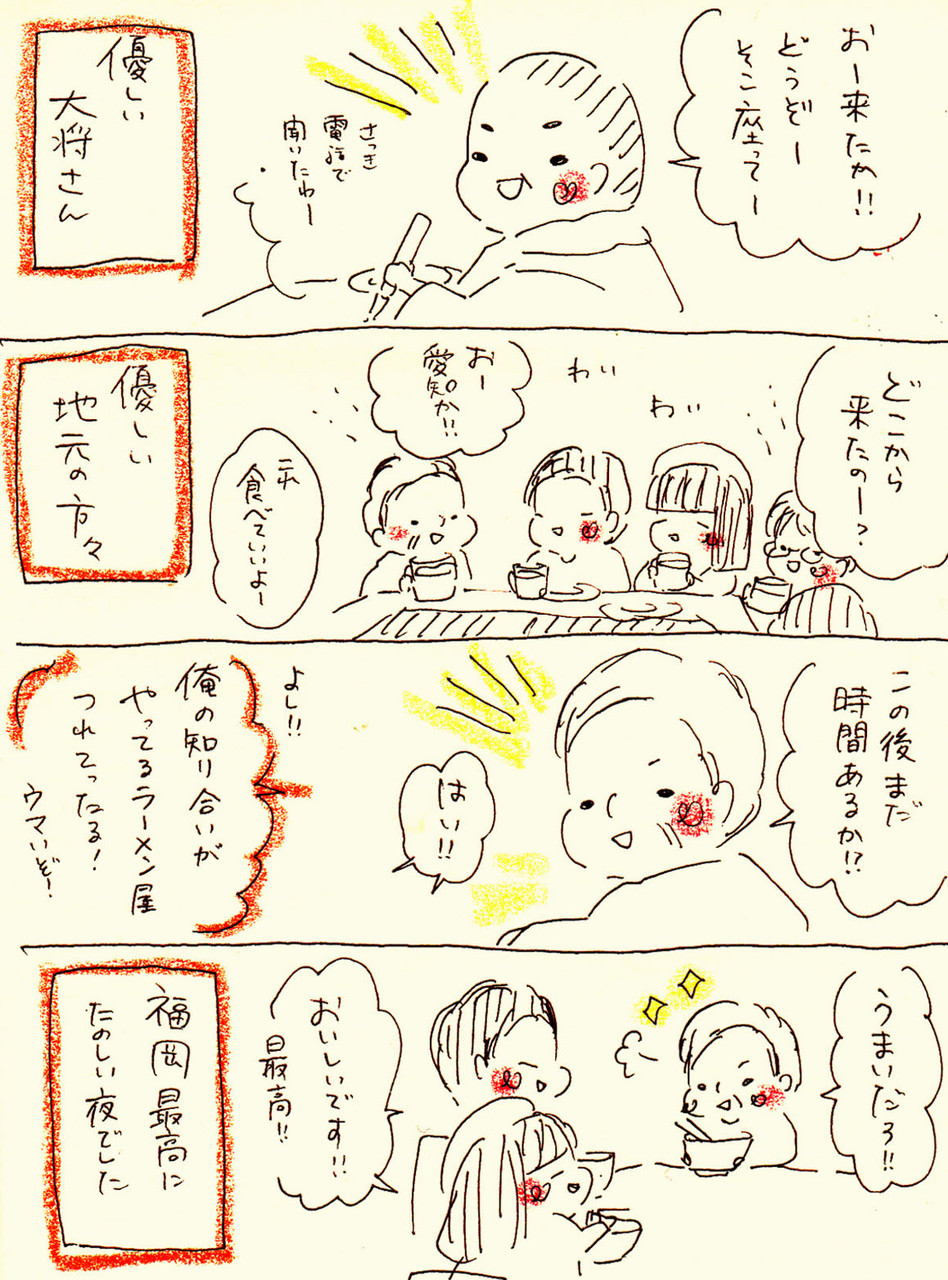 おー来たか!!
どうぞー
そこ座ってー
さっき
電話で
聞いたわー
優しい
大将さん
どこから
来たのー?
わい
わい
おー
愛知か!!
コレ
食べていいよー
優しい
地元の方々
この後まだ
時間あるか!?
はい!!
よし!!
俺の知り合いが
やってるラーメン屋
つれてったる!
ウマいぞ!
うまいだろ!!
おいしいです!!
最高!!
福岡最高に
たのしい夜でした